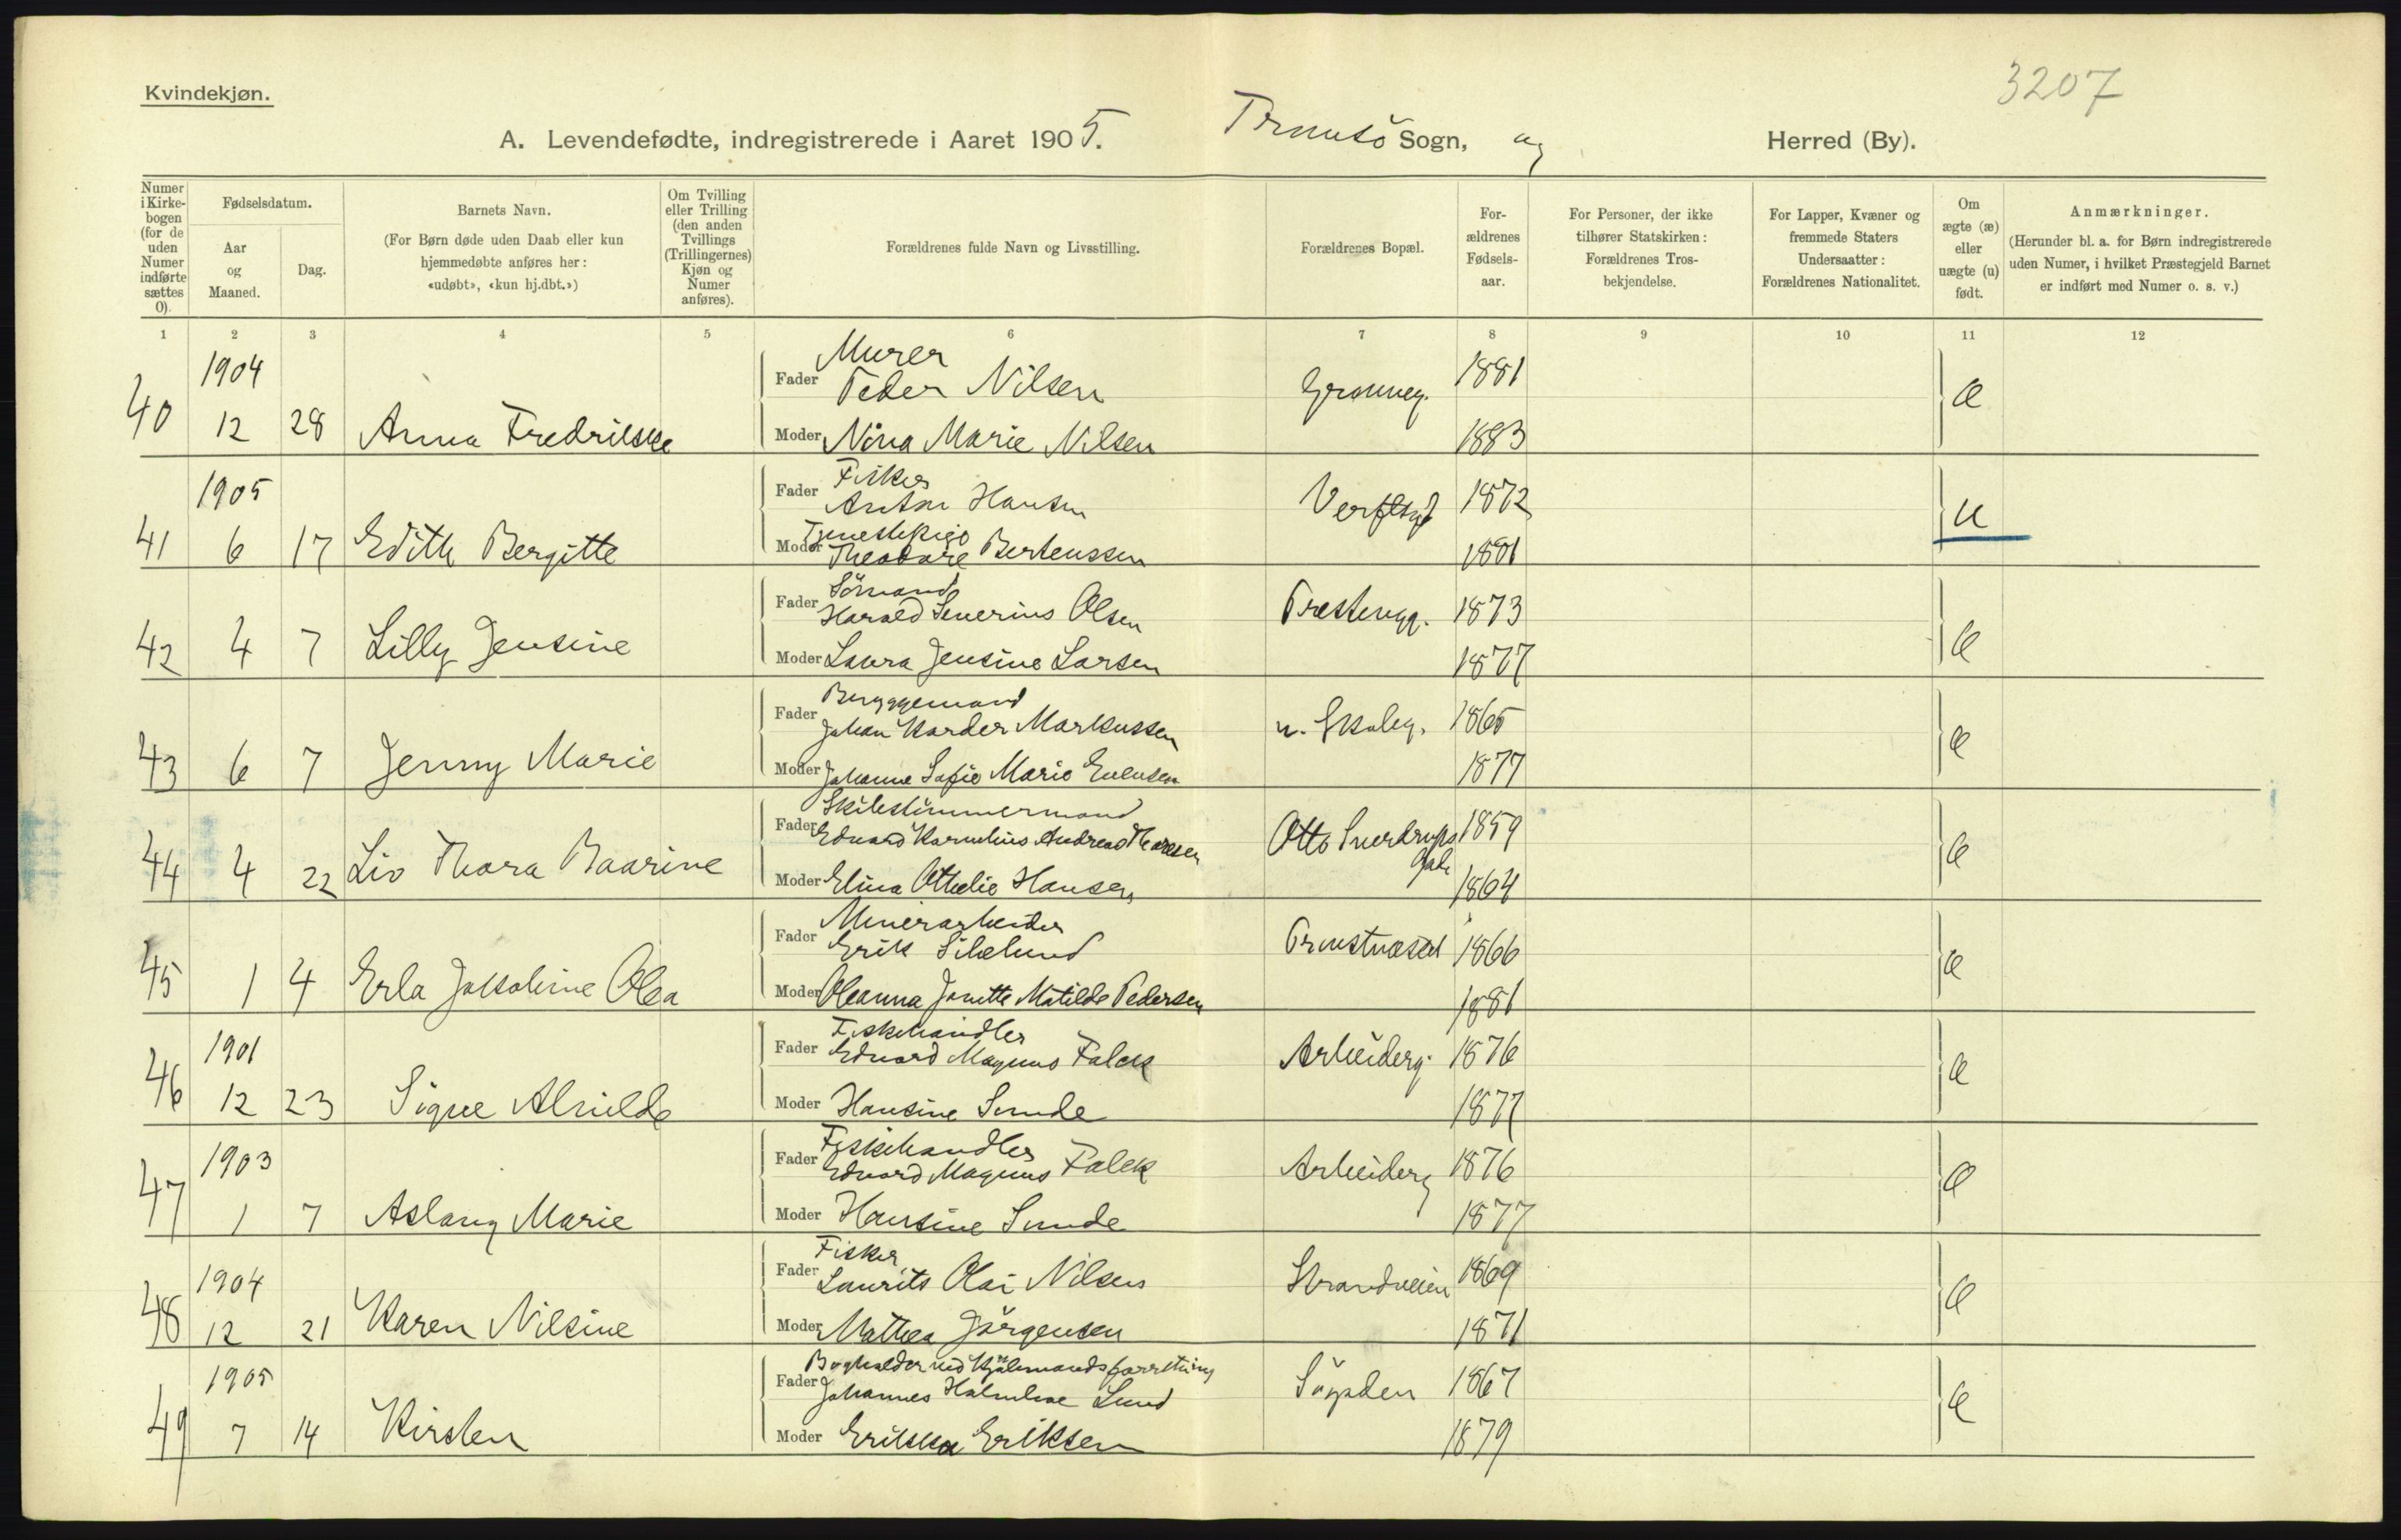 3207
Kvindekjøn.
A. Levendefødte, indregistrerede i Aaret 1905. Tromsö Sogn, og Herred (By).
Numer i Kirkebogen (for de uden Numer indførte sættes 0).
Fødselsdatum.
Aar og Maaned.
Dag.
Barnets Navn.
(For Børn døde uden Daab eller kun hjemmedøbte anføres her: «udøbt», «kun hj.dbt.»)
Om Tvilling eller Trilling (den anden Tvillings (Trillingernes) Kjøn og Numer anføres).
Forældrenes fulde Navn og Livsstilling.
Forældrenes Bopæl.
Forældrenes Fødselsaar.
For Personer, der ikke tilhører Statskirken: Forældrenes Trosbekjendelse.
For Lapper, Kvæner og fremmede Staters Undersaatter: Forældrenes Nationalitet.
Om ægte (æ) eller uægte (u) født.
Anmærkninger.
(Herunder bl. a. for Børn indregistrerede uden Numer, i hvilket Præstegjeld Barnet er indført med Numer o. s. v.)
1 2 3 4 5 6 7 8 9 10 11 12
1904
Murer
Fader Peder Nilsen Grønneg. 1881 æ
40 12 28 Anna Fredrikke
Moder Nina Marie Nilsen 1883
1905
Fisker
Fader Anton Hansen Verftsgd 1872 u
Tjenestepige
41 6 17 Edith Bergitte
Moder Theodore Berteussen 1881
Sömand
Fader Harald Severius Olsen Præstengg. 1873
42 4 7 Lilly Jensine æ
Moder Laura Jensine Larsen 1877
Bryggemand
Fader Johan Karder Markussen n. Skoleg. 1865
43 6 7 Jenny Marie æ
Moder Johanne Sofie Marie Evensen 1877
Skibstimmermand
Fader Edvard Kornelius Andreas Thoresen Otto Sverdrups Gade 1859
44 4 22 Liv Thora Baarine æ
Moder Elina Othelie Hansen 1864
Minerarbeider
Fader Erik 1866
45 1 4 Erla Jakobine Olea æ
Moder Oleanna Janette Matilde Pedersen 1881
1901
Fiskehandler
Fader Edvard Magnus Falck Arbeiderg. 1876
46 12 23 Signe Alvilde æ
Moder Hansine Sunde 1877
1903
Fiskehandler
Fader Edvard Magnus Falck Arbeiderg 1876
47 1 7 Aslaug Marie æ
Moder Hansine Sunde 1877
1904
Fisker
Fader Laurits Olai Nilsen Strandveien 1869
48 12 21 Karen Nilsine æ
Moder Mathea Jörgensen 1871
1905
Bogholder ved Kjölmandsforretning
Fader Johannes Holmboe Lund Sögaden 1867
49 7 14 Kirsten æ
Moder Erikka Eriksen 1879